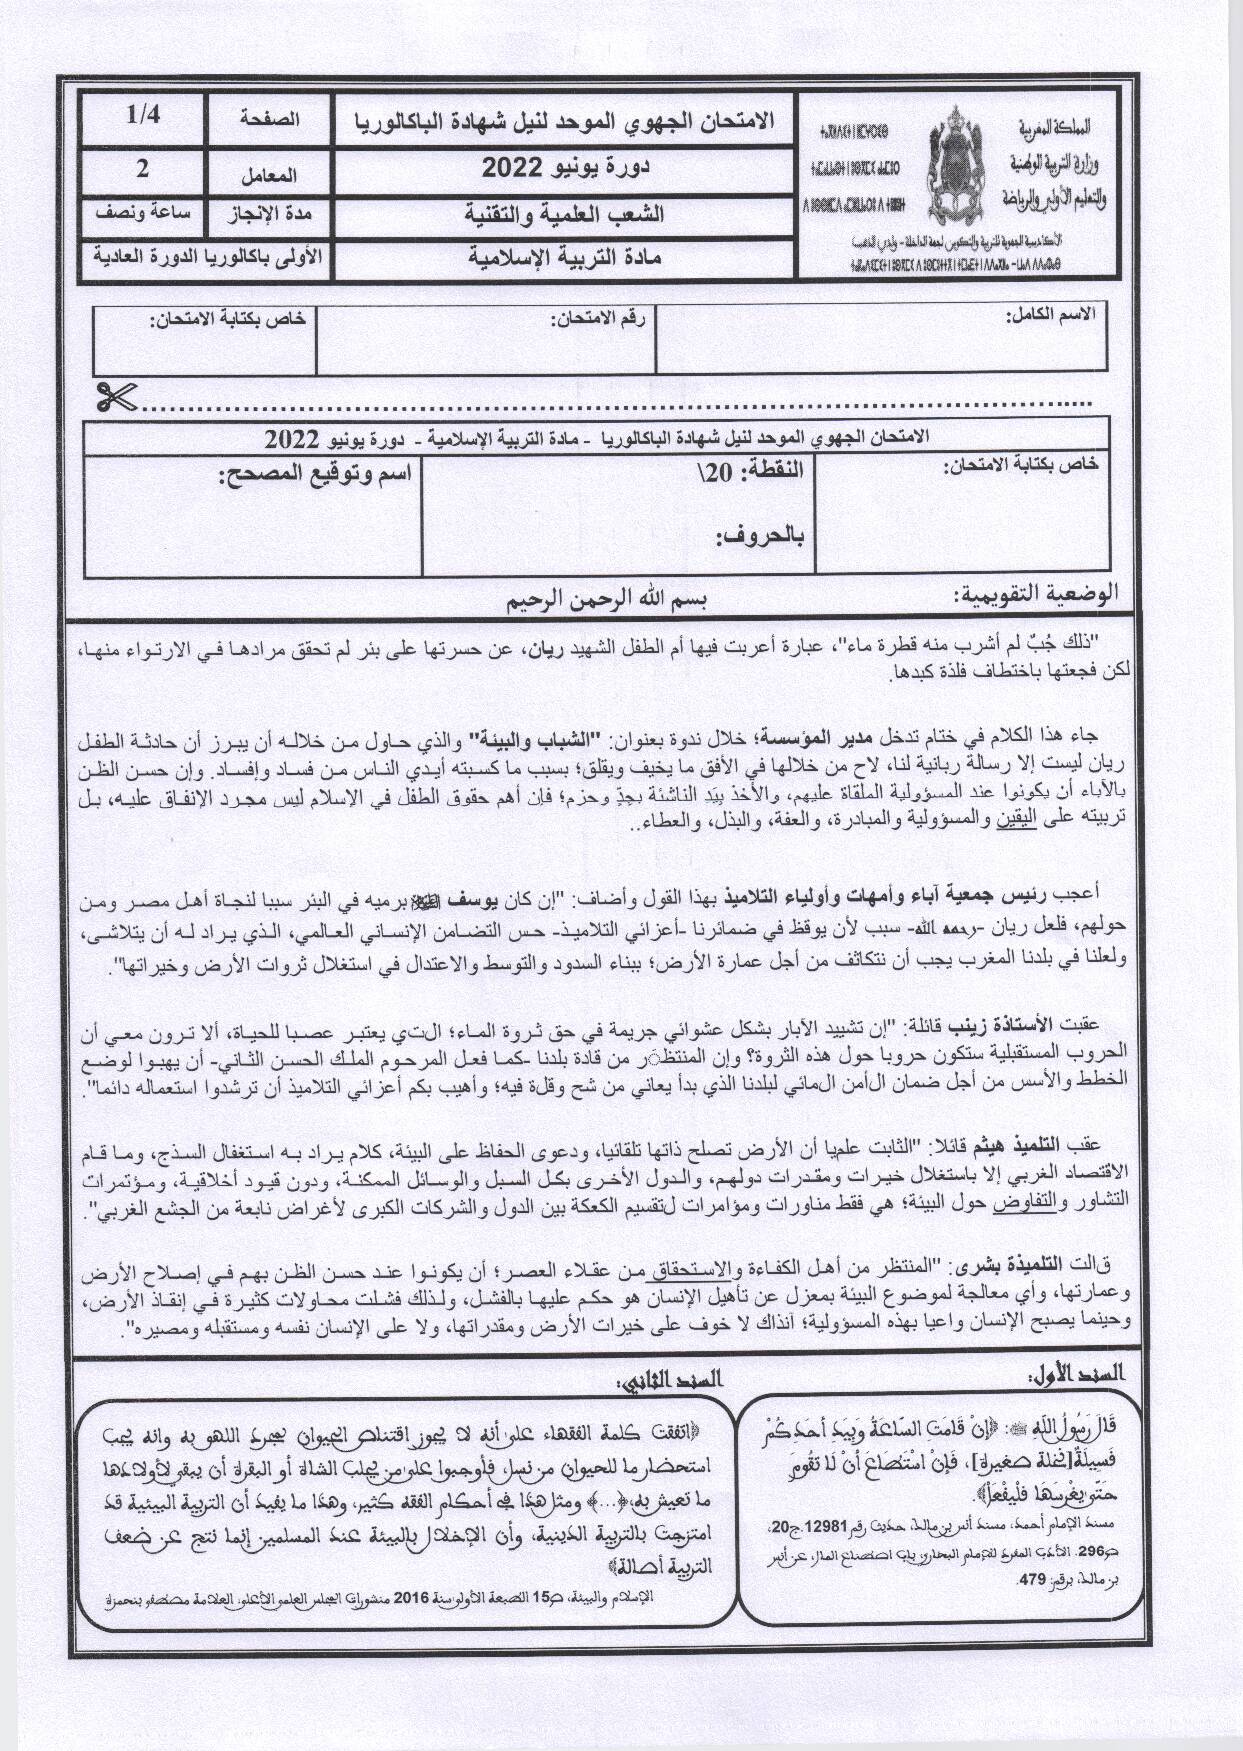 المملكة المغربية
وزارة التربية الوطنية
والتعليم الأولي والرياضة
الأكاديمية الجهوية للتربية والتكوين لجهة الداخلة - وادي الذهب
الامتحان الجهوي الموحد لنيل شهادة الباكالوريا
الصفحة
1/4
دورة يونيو 2022
المعامل
2
الشعب العلمية والتقنية
مدة الإنجاز
ساعة ونصف
مادة التربية الإسلامية
الأولى باكالوريا الدورة العادية
الاسم الكامل:
رقم الامتحان:
خاص بكتابة الامتحان:
الامتحان الجهوي الموحد لنيل شهادة الباكالوريا - مادة التربية الإسلامية - دورة يونيو 2022
خاص بكتابة الامتحان:
النقطة: 20\
بالحروف:
اسم وتوقيع المصحح:
الوضعية التقويمية:
بسم الله الرحمن الرحيم
"ذلك جُبٌ لم أشرب منه قطرة ماء"، عبارة أعربت فيها أم الطفل الشهيد ريان، عن حسرتها على بئر لم تحقق مرادها في الارتواء منها،
لكن فجعتها باختطاف فلذة كبدها.
جاء هذا الكلام في ختام تدخل مدير المؤسسة؛ خلال ندوة بعنوان: "الشباب والبيئة" والذي حاول من خلاله أن يبرز أن حادثة الطفل
ريان ليست إلا رسالة ربانية لنا، لاح من خلالها في الأفق ما يخيف ويقلق؛ بسبب ما كسبته أيدي الناس من فساد وإفساد. وإن حسن الظن
بالآباء أن يكونوا عند المسؤولية الملقاة عليهم، والأخذ بيَدِ الناشئة بجدٍ وحزم؛ فإن أهم حقوق الطفل في الإسلام ليس مجرد الانفاق عليه، بل
تربيته على اليقين والمسؤولية والمبادرة، والعفة، والبذل، والعطاء..
أعجب رئيس جمعية آباء وأمهات وأولياء التلاميذ بهذا القول وأضاف: "إن كان يوسف برميه في البئر سببا لنجاة أهل مصر ومن
حولهم، فلعل ريان -رحمه الله- سبب لأن يوقظ في ضمائرنا -أعزائي التلاميذ- حس التضامن الإنساني العالمي، الذي يراد له أن يتلاشى،
ولعلنا في بلدنا المغرب يجب أن نتكاثف من أجل عمارة الأرض؛ ببناء السدود والتوسط والاعتدال في استغلال ثروات الأرض وخيراتها".
عقبت الأستاذة زينب قائلة: "إن تشييد الآبار بشكل عشوائي جريمة في حق ثروة الماء؛ التي يعتبر عصبا للحياة، ألا ترون معي أن
الحروب المستقبلية ستكون حروبا حول هذه الثروة؟ وإن المنتظر من قادة بلدنا -كما فعل المرحوم الملك الحسن الثاني- أن يهبوا لوضع
الخطط والأسس من أجل ضمان الأمن المائي لبلدنا الذي بدأ يعاني من شح وقلة فيه؛ وأهيب بكم أعزائي التلاميذ أن ترشدوا استعماله دائما".
عقب التلميذ هيثم قائلا: "الثابت علميا أن الأرض تصلح ذاتها تلقائيا، ودعوى الحفاظ على البيئة، كلام يراد به استغفال السذج، وما قام
الاقتصاد الغربي إلا باستغلال خيرات ومقدرات دولهم، والدول الأخرى بكل السبل والوسائل الممكنة، ودون قيود أخلاقية، ومؤتمرات
التشاور والتفاوض حول البيئة؛ هي فقط مناورات ومؤامرات لتقسيم الكعكة بين الدول والشركات الكبرى لأغراض نابعة من الجشع الغربي".
قالت التلميذة بشرى: "المنتظر من أهل الكفاءة والاستحقاق من عقلاء العصر؛ أن يكونوا عند حسن الظن بهم في إصلاح الأرض
وعمارتها، وأي معالجة لموضوع البيئة بمعزل عن تأهيل الإنسان هو حكم عليها بالفشل، ولذلك فشلت محاولات كثيرة في إنقاذ الأرض،
وحينما يصبح الإنسان واعيا بهذه المسؤولية؛ آنذاك لا خوف على خيرات الأرض ومقدراتها، ولا على الإنسان نفسه ومستقبله ومصيره".
السند الأول:
قَالَ رَسُولُ اللَّهِ ﷺ: «إِنْ قَامَتِ السَّاعَةُ وَبِيَدِ أَحَدِكُمْ
فَسِيلَةٌ[نخلة صغيرة]، فَإِنْ اسْتَطَاعَ أَنْ لَا تَقُومَ
حَتَّى يَغْرِسَهَا فَلْيَفْعَلْ».
مسند الإمام أحمد، مسند أنس بن مالك، حديث رقم 12981.ج20،
ص296. الأدب المفرد للإمام البخاري باب اصطناع المال، عن أنس
بن مالك، برقم: 479.
السند الثاني:
«اتفقت كلمة الفقهاء على أنه لا يجوز اقتناص الحيوان بمجرد اللهو به وانه يجب
استحضار ما للحيوان من نسل فأوجبوا على من يحلب الشاة أو البقرة أن يبقي لأولادها
ما تعيش به،(...) ومثل هذا في أحكام الفقه كثير، وهذا ما يفيد أن التربية البيئية قد
امتزجت بالتربية الدينية، وأن الإخلال بالبيئة عند المسلمين إنما نتج عن ضعف
التربية أصالة»
الإسلام والبيئة، ص15 الطبعة الأولى سنة 2016 منشورات المجلس العلمي الأعلى العلامة مصطفى بنحمزة